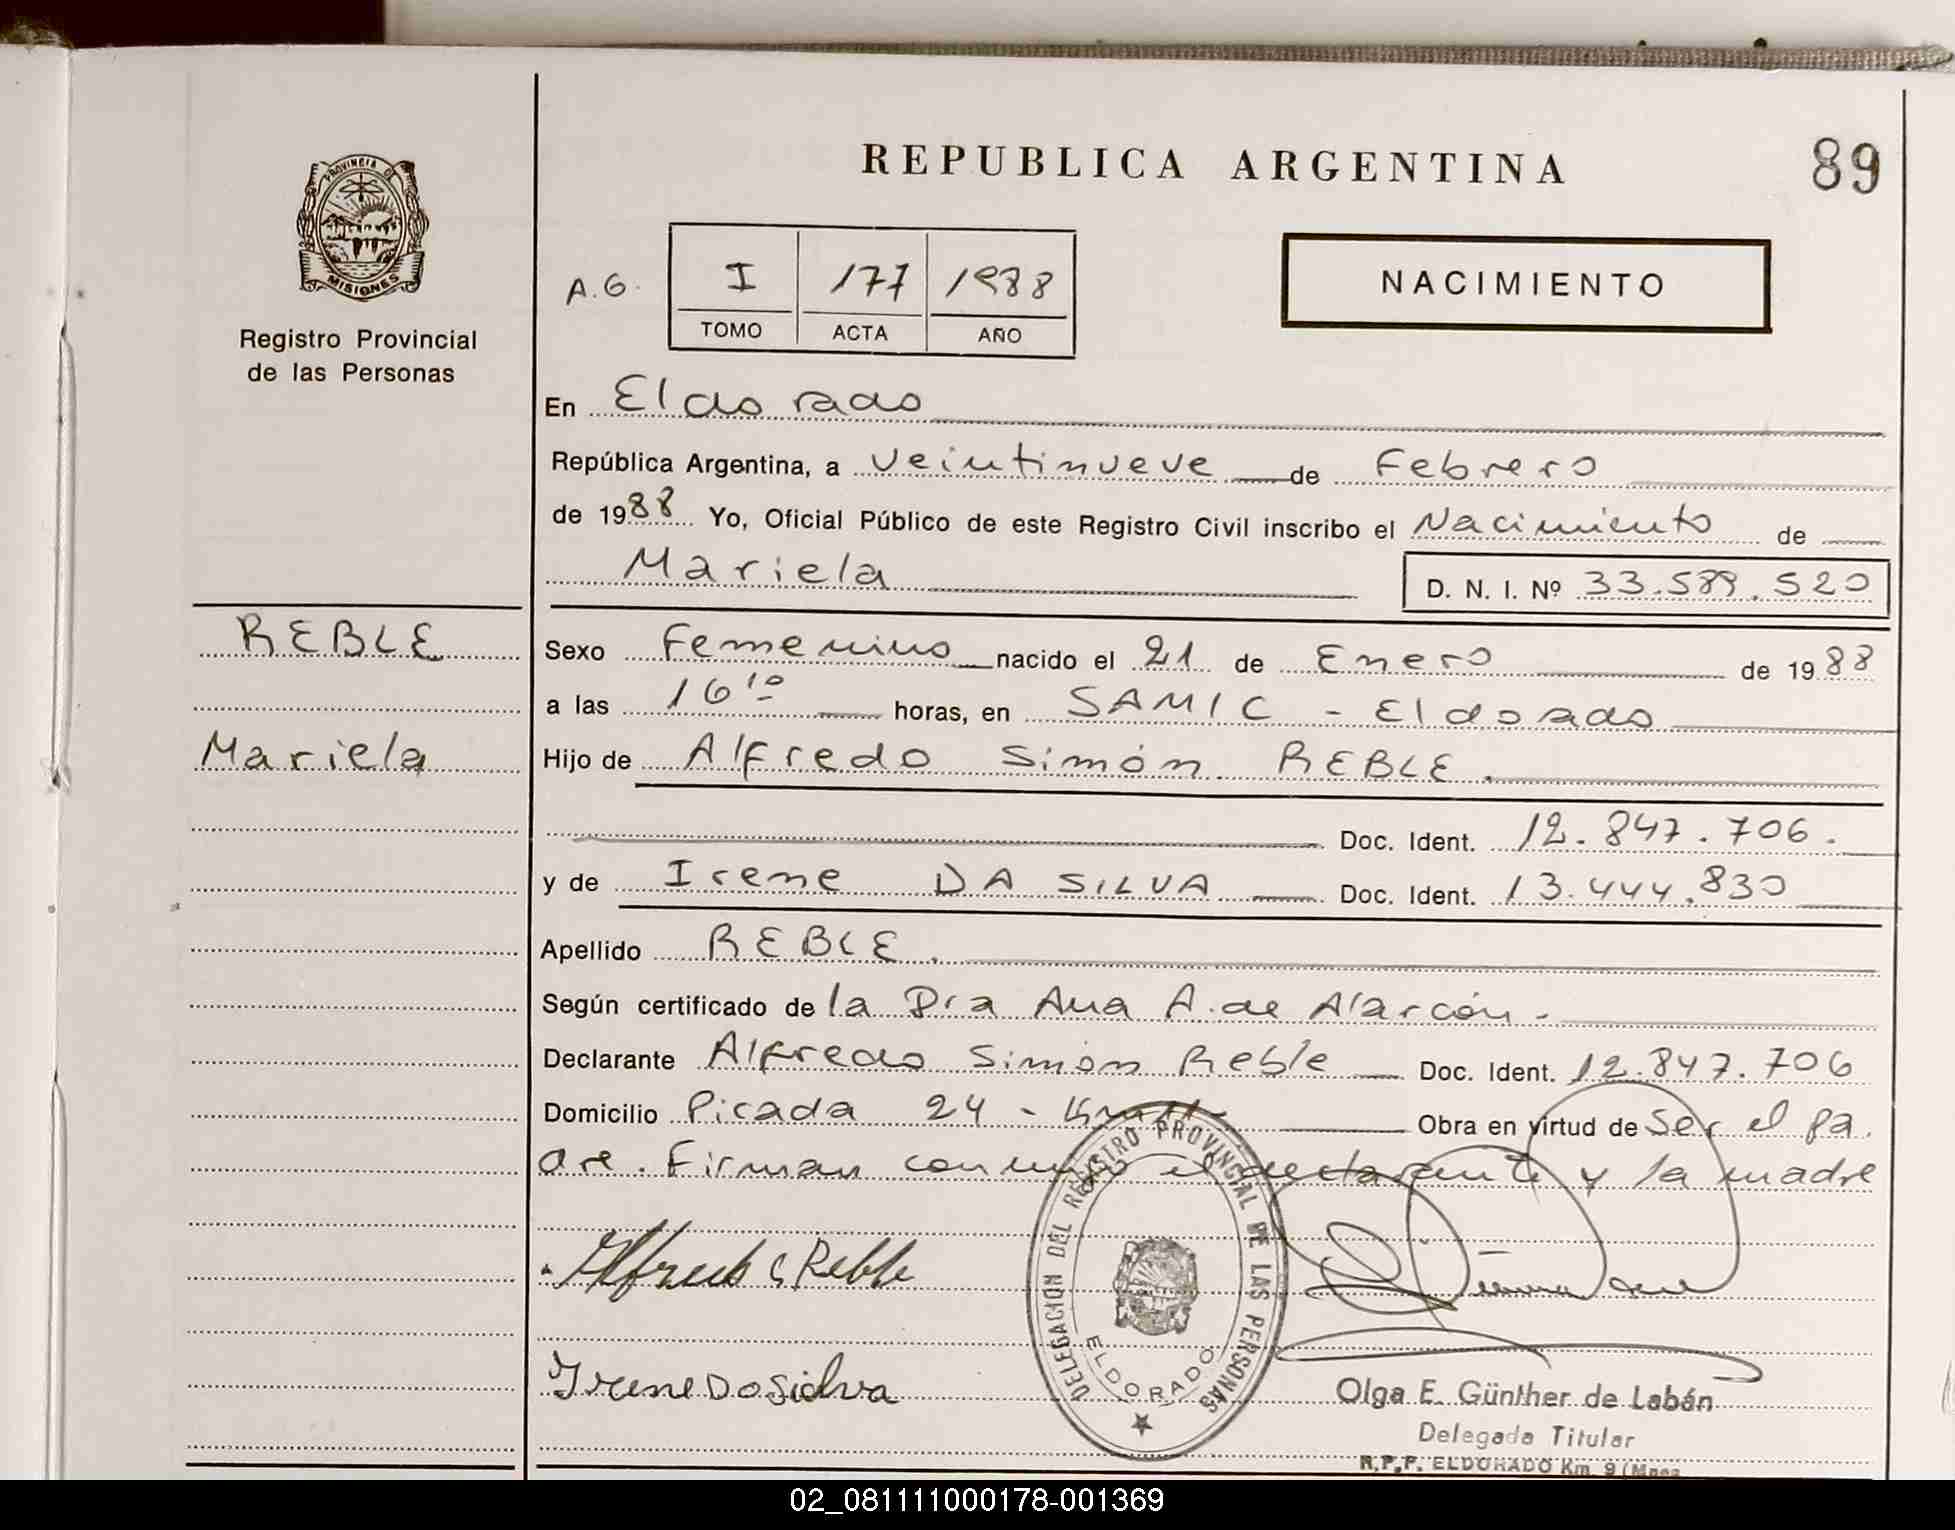 REPUBLICA ARGENTINA
89
PROVINCIA DE
MISIONES
Registro Provincial
de las Personas
A.G.
I 177 1988
TOMO ACTA AÑO
NACIMIENTO
En Eldorado
República Argentina, a veintinueve de Febrero
de 1988 Yo, Oficial Público de este Registro Civil inscribo el Nacimiento de
Mariela
D. N. I. Nº 33.589.520
REBLE
Mariela
Sexo Femenino nacido el 21 de Enero de 1988
a las 16¹º horas, en SAMIC - Eldorado
Hijo de Alfredo Simón REBLE.
Doc. Ident. 12.847.706.
y de Irene DA SILVA Doc. Ident. 13.444.830
Apellido REBLE.
Según certificado de la Dra Ana A. de Alarcón-
Declarante Alfredo Simón Reble Doc. Ident. 12.847.706
Domicilio Picada 24 - Km 11 Obra en virtud de ser el pa.
dre. Firman conmigo el declarante y la madre
Alfredo S Reble
Irene Da Silva
DELEGACION DEL REGISTRO PROVINCIAL DE LAS PERSONAS
ELDORADO
Olga E. Günther de Labán
Delegada Titular
R.P.P. ELDORADO Km. 9
02_081111000178-001369